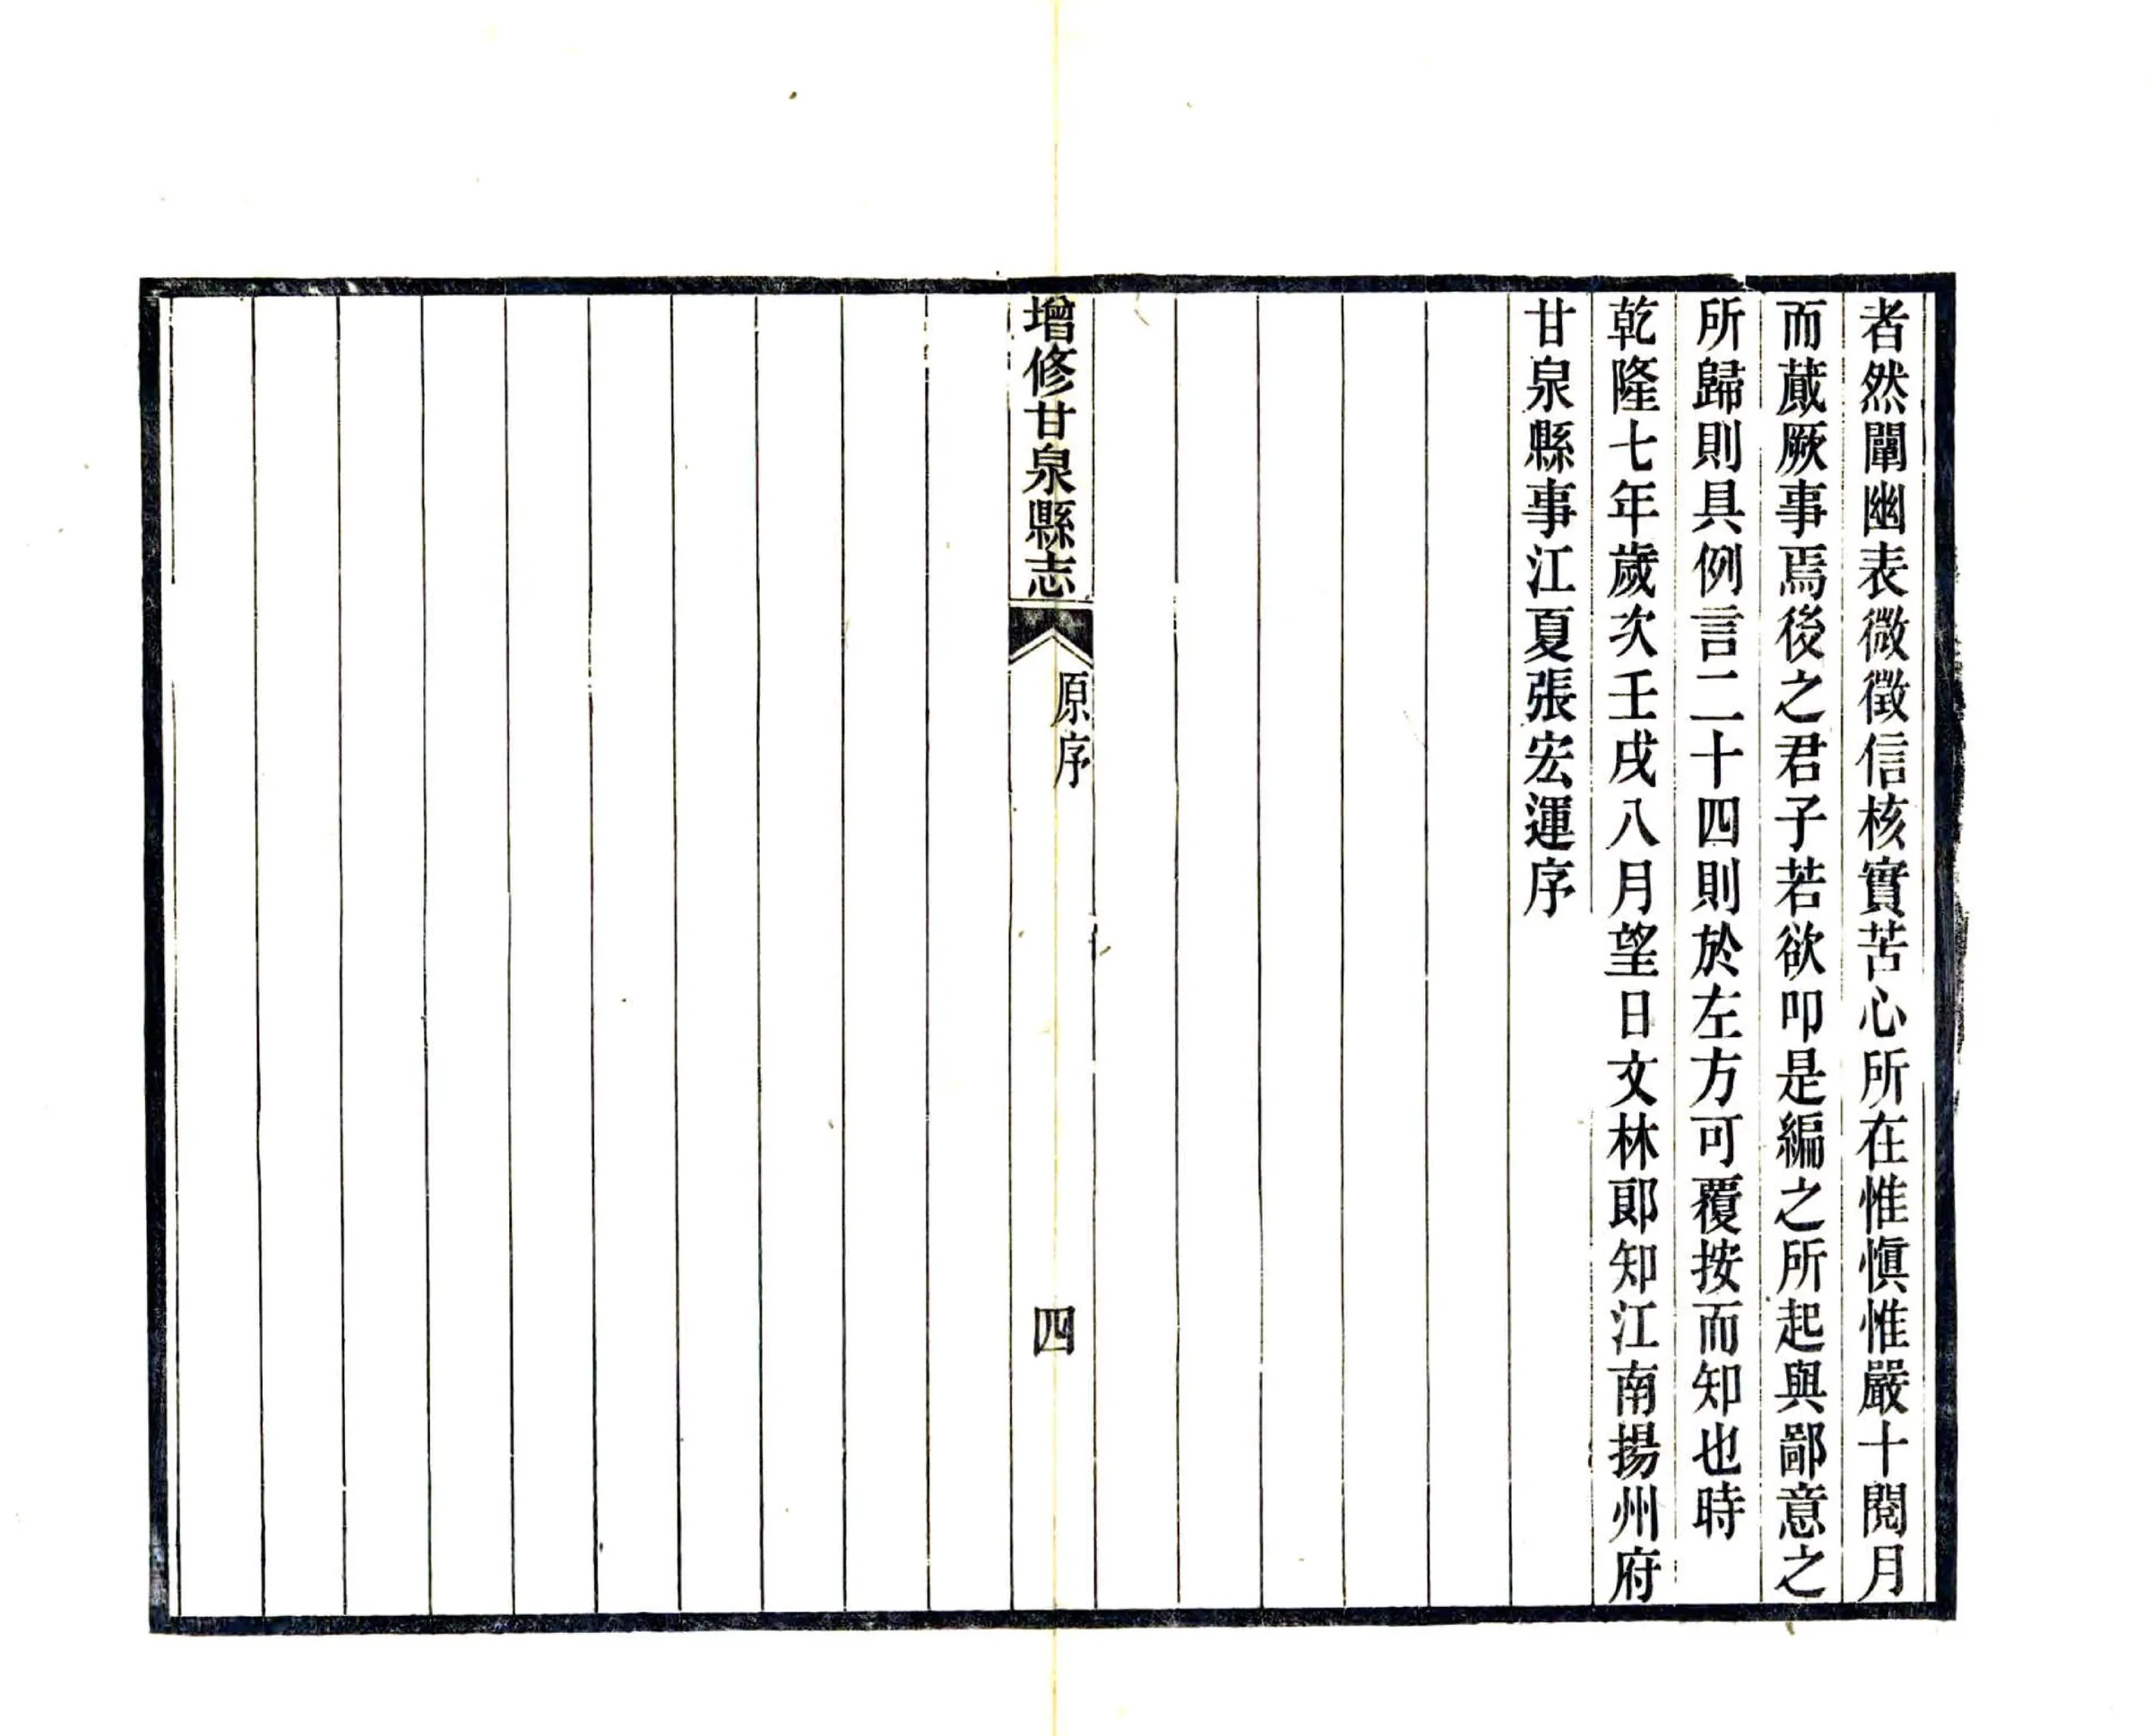 者然闡幽表微徵信核實苦心所在惟愼惟嚴十閱月
而蕆厥事焉後之君子若欲叩是編之所起與鄙意之
所歸則具例言二十四則於左方可覆按而知也時
乾隆七年歲次壬戌八月望日文林郞知江南揚州府
甘泉縣事江夏張宏運序
增修甘泉縣志
原序
四